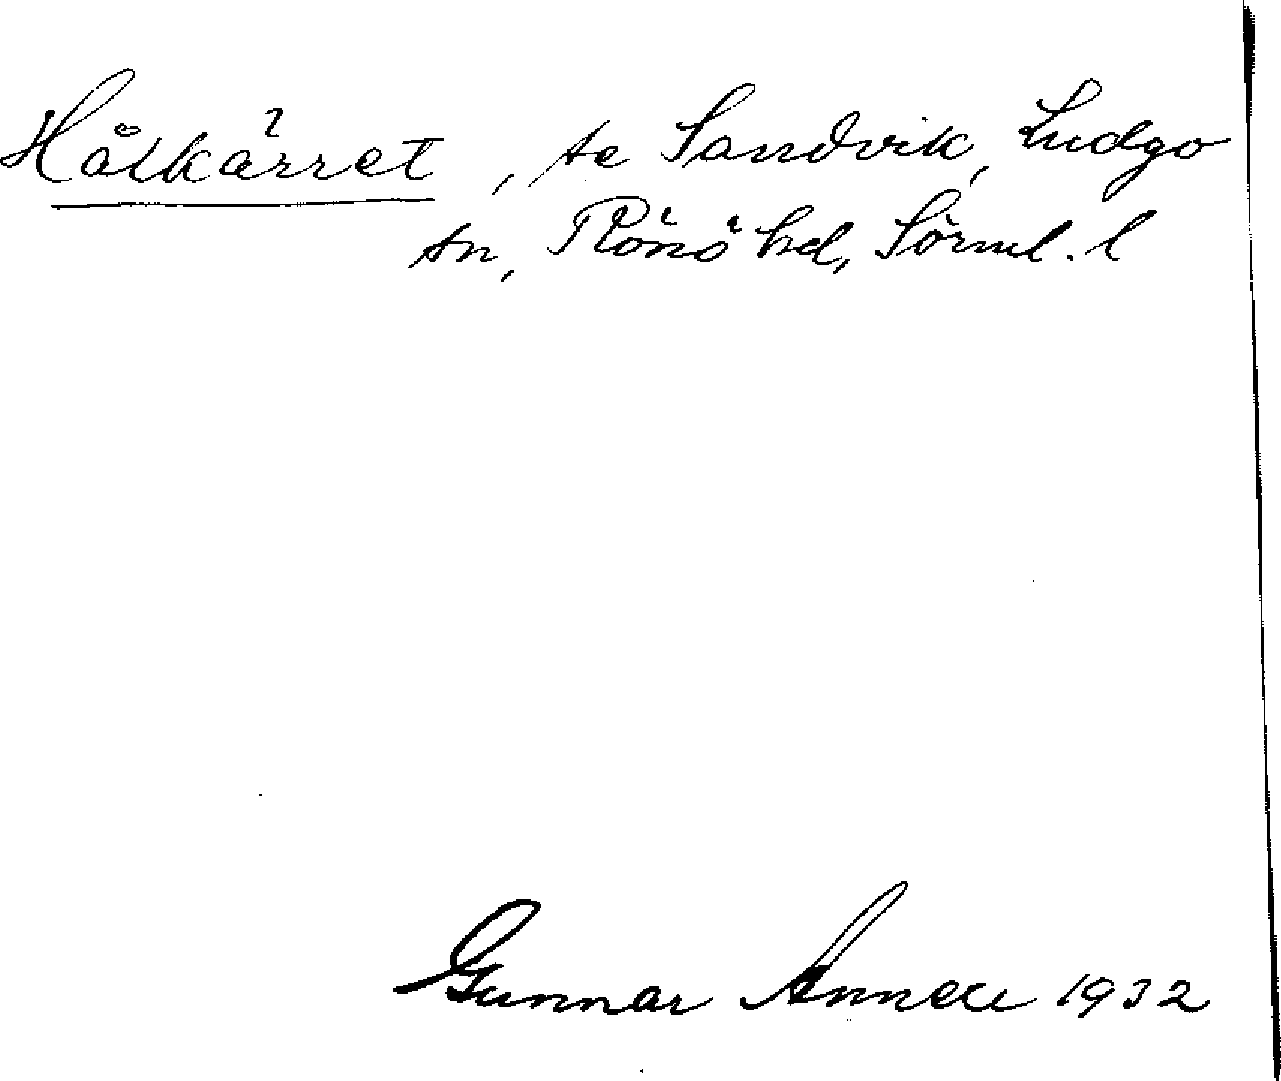 Hålkärret, se Sandvik, Ludgo
sn, Rönö hd, Sörml. l
Gunnar 1932